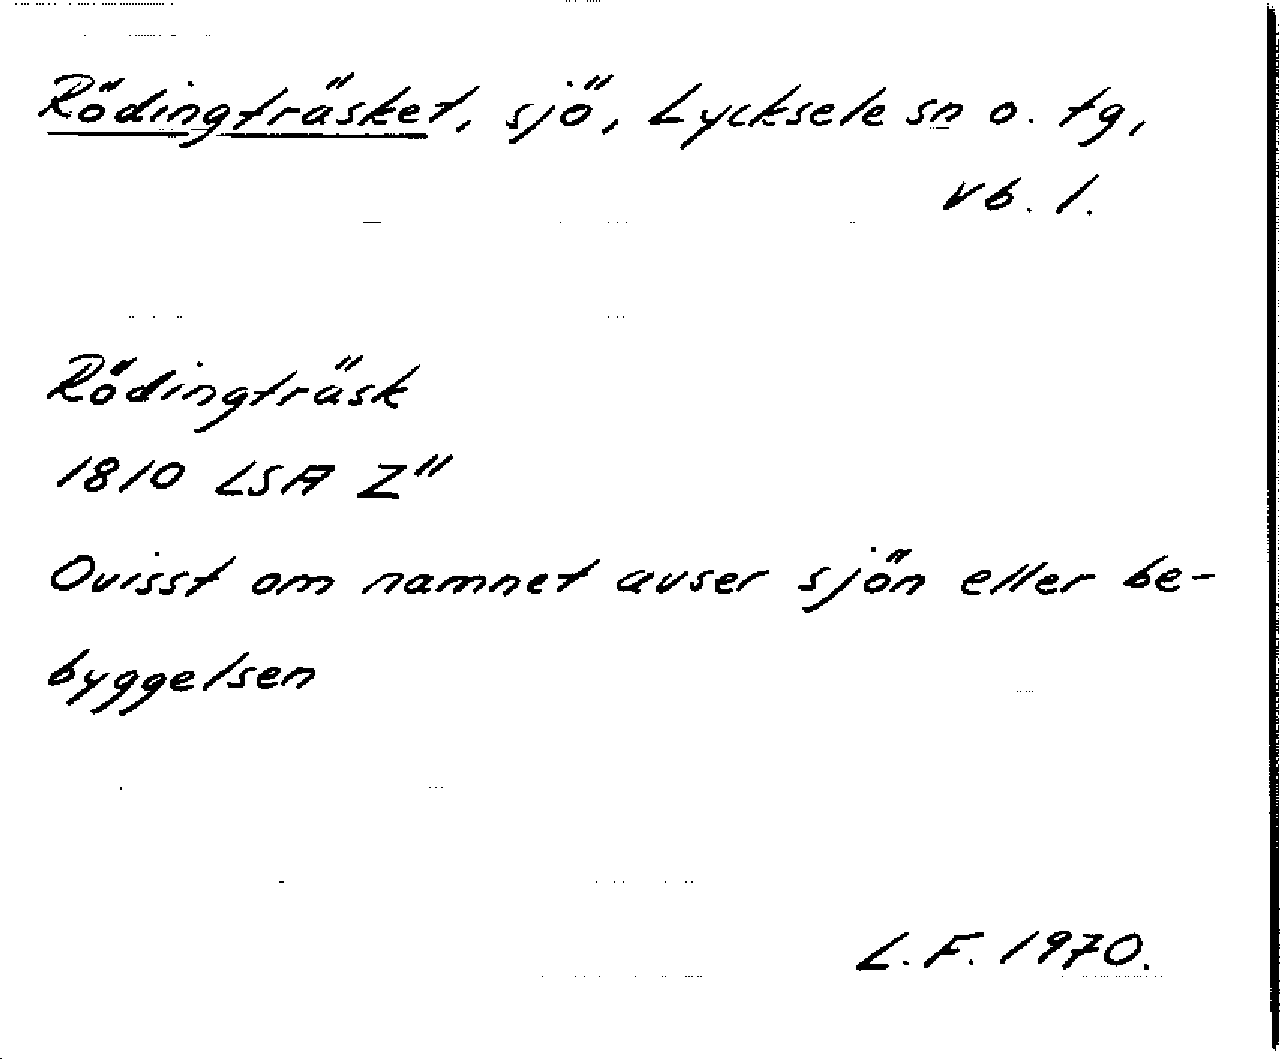 Rödingträsket, sjö, Lycksele sn o. tg,
vb. l.
Rödingträsk
1810 LSA Z"
Ovisst om namnet avser sjön eller be-
byggelsen
L.F. 1970.